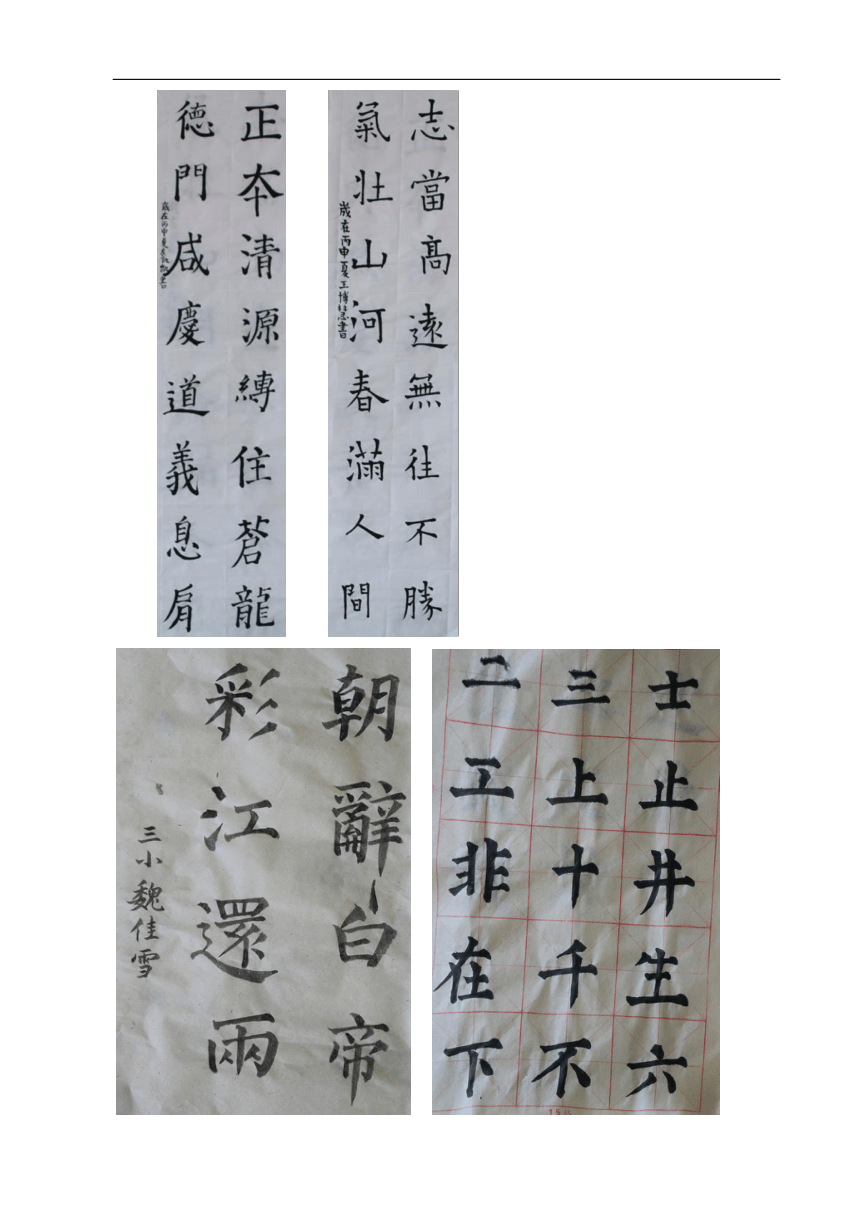 正本清源縛住蒼龍
德門咸慶道義息肩
志當高遠無往不勝
氣壯山河春滿人間
歲在丙申夏王博慧書
朝辭白帝
彩江還兩
三小魏佳雪
士止井生六
三上十千不
二工非在下